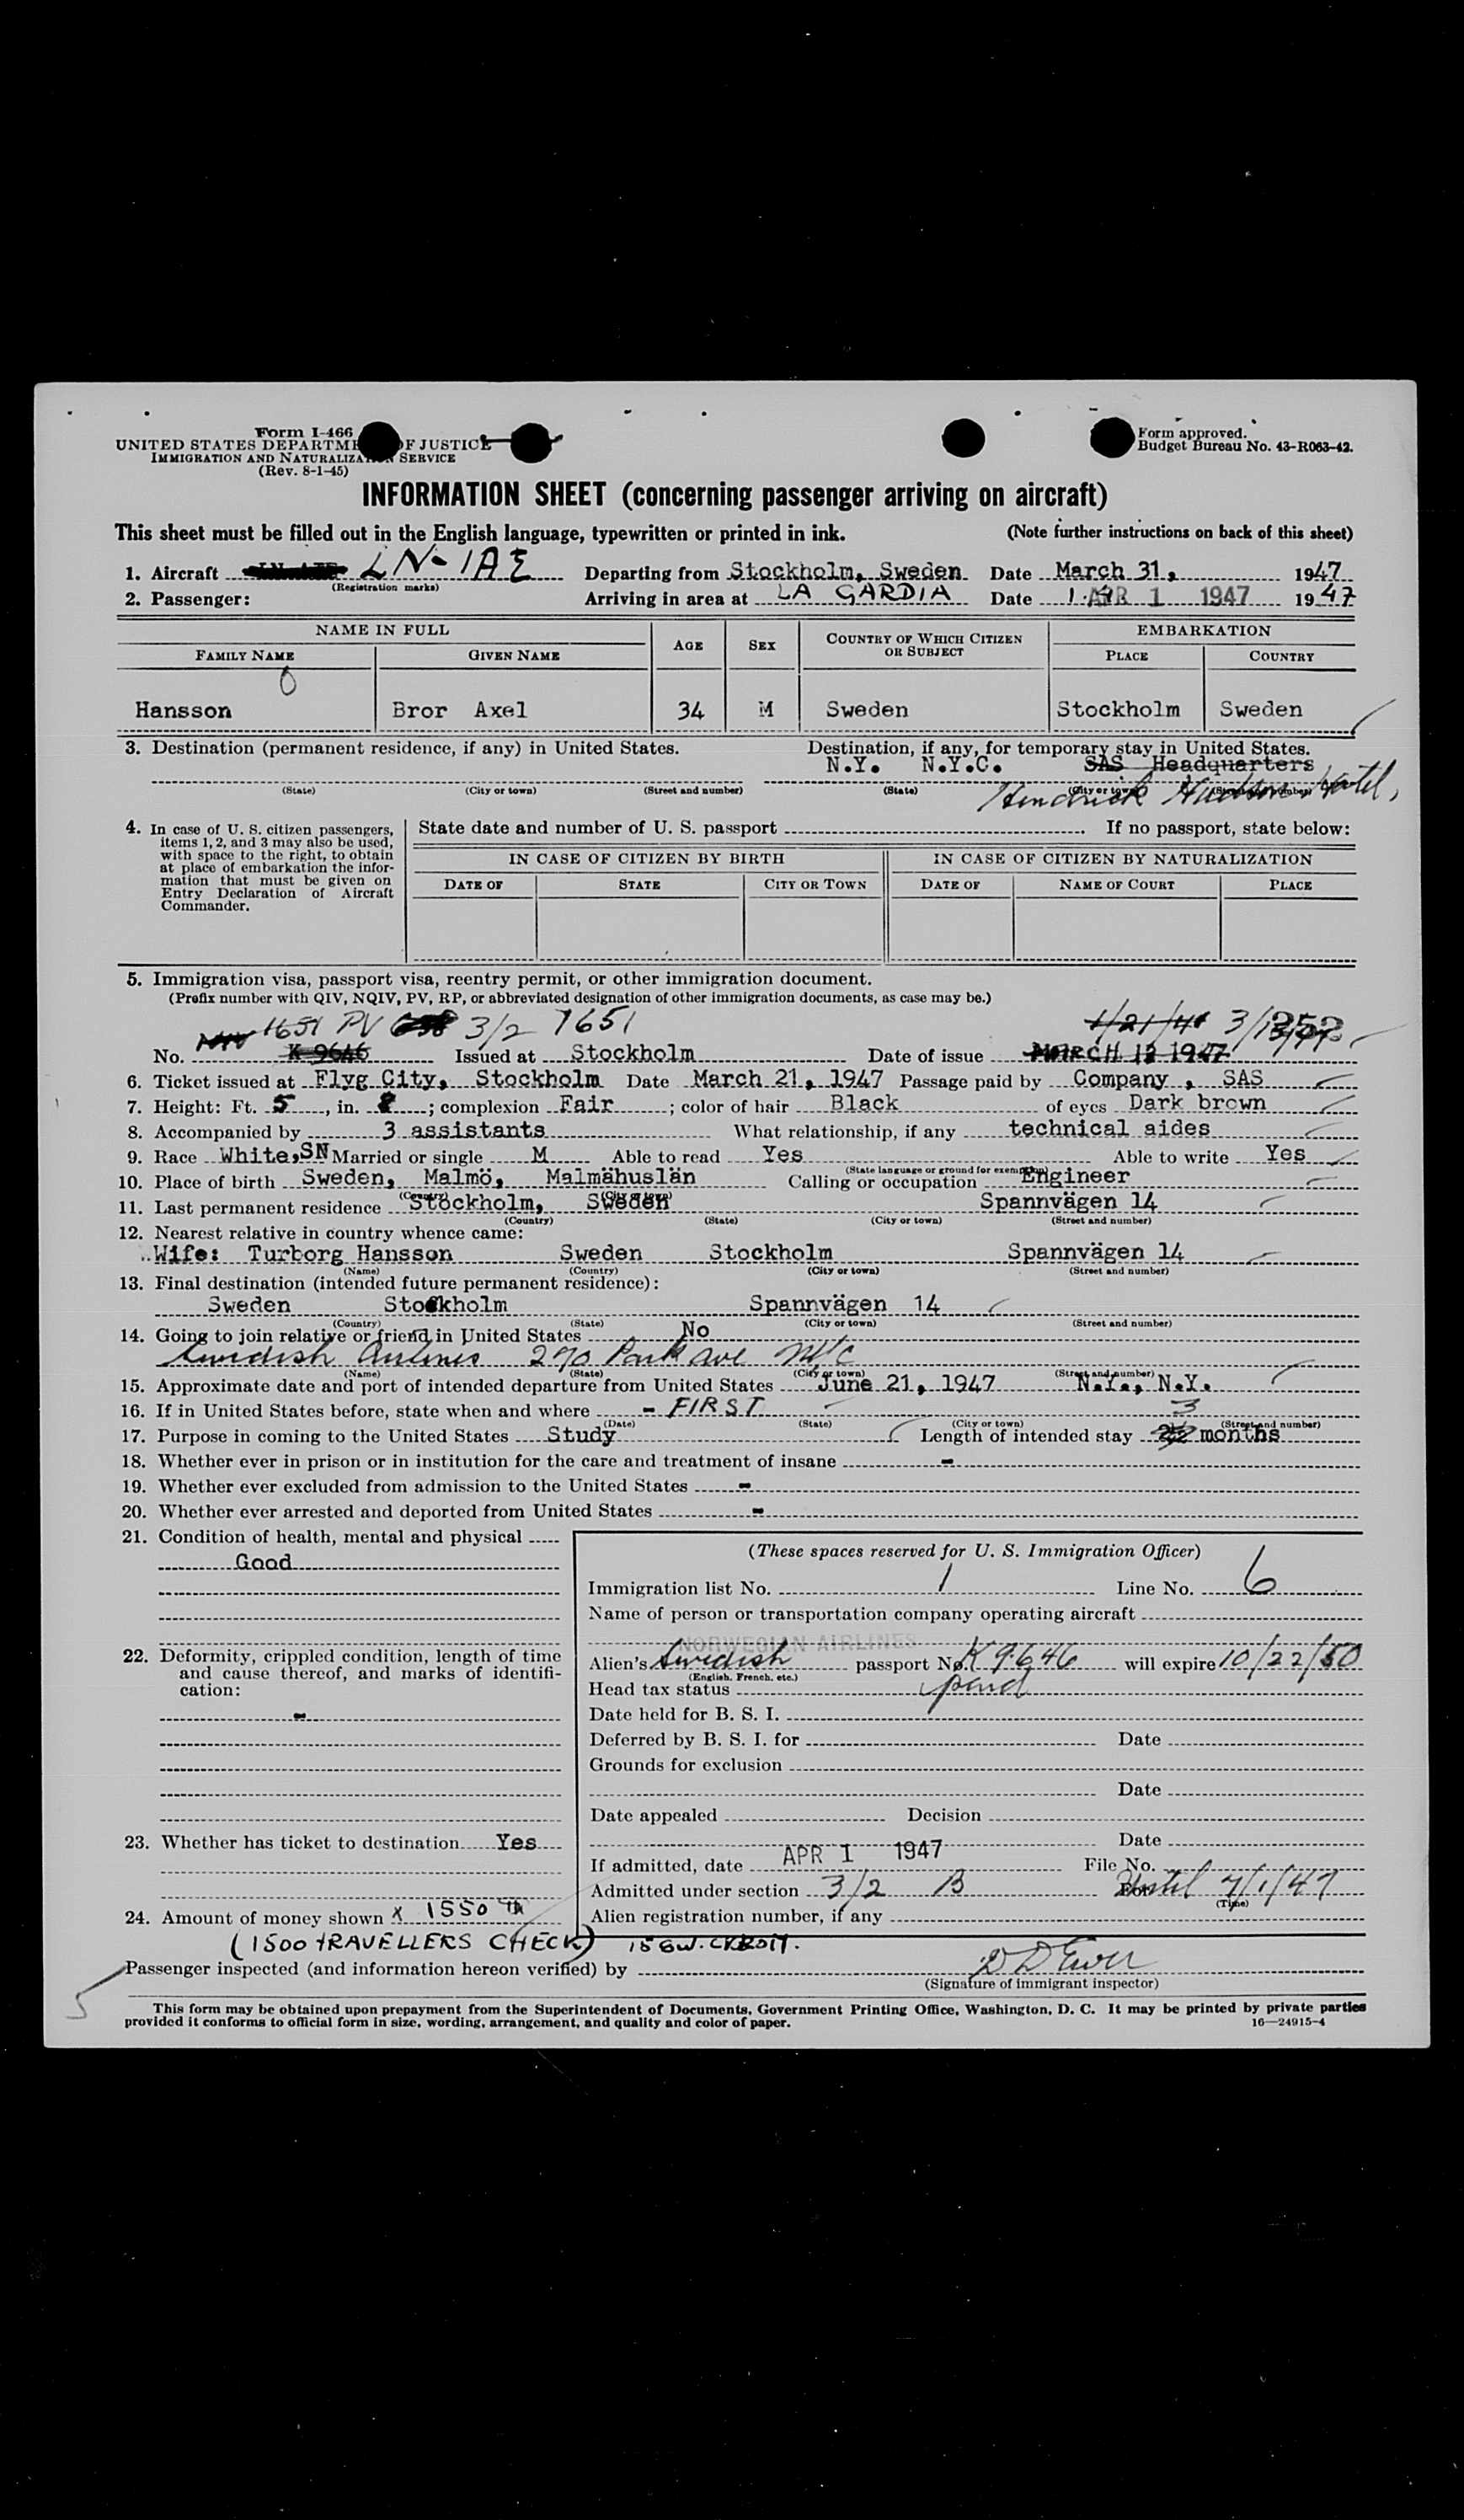 Form I-466
UNITED STATES DEPARTMENT OF JUSTICE
IMMIGRATION AND NATURALIZATION SERVICE
(Rev. 8-1-45)
Form approved.
Budget Bureau No. 43-R063-42.
INFORMATION SHEET (concerning passenger arriving on aircraft)
This sheet must be filled out in the English language, typewritten or printed in ink. (Note further instructions on back of this sheet)
1. Aircraft LN-IAE Departing from Stockholm, Sweden Date March 31, 1947
(Registration marks)
2. Passenger: Arriving in area at LA GARDIA Date APR 1 1947 1947
NAME IN FULL AGE SEX COUNTRY OF WHICH CITIZEN OR SUBJECT EMBARKATION
FAMILY NAME GIVEN NAME PLACE COUNTRY
Hansson Bror Axel 34 M Sweden Stockholm Sweden
3. Destination (permanent residence, if any) in United States. Destination, if any, for temporary stay in United States.
N.Y. N.Y.C. SAS Headquarters
(State) (City or town) (Street and number) (State) (City or town) (Street and number)
Hendrick Hudson Hotel,
4. In case of U. S. citizen passengers, items 1, 2, and 3 may also be used, with space to the right, to obtain at place of embarkation the information that must be given on Entry Declaration of Aircraft Commander.
State date and number of U. S. passport If no passport, state below:
IN CASE OF CITIZEN BY BIRTH IN CASE OF CITIZEN BY NATURALIZATION
DATE OF STATE CITY OR TOWN DATE OF NAME OF COURT PLACE
5. Immigration visa, passport visa, reentry permit, or other immigration document.
(Prefix number with QIV, NQIV, PV, RP, or abbreviated designation of other immigration documents, as case may be.)
1651 PV 3/2 1651
No. K 9646 Issued at Stockholm Date of issue MARCH 12 1947
6. Ticket issued at Flyg City, Stockholm Date March 21, 1947 Passage paid by Company , SAS
7. Height: Ft. 5, in. 8; complexion Fair; color of hair Black of eyes Dark brown
8. Accompanied by 3 assistants What relationship, if any technical aides
9. Race White, SN Married or single M Able to read Yes Able to write Yes
(State language or ground for exemption)
10. Place of birth Sweden, Malmö, Malmöhuslän Calling or occupation Engineer
(Country) (City or town)
11. Last permanent residence Stockholm, Sweden Spannvägen 14
(Country) (State) (City or town) (Street and number)
12. Nearest relative in country whence came:
Wife: Turborg Hansson Sweden Stockholm Spannvägen 14
(Name) (Country) (City or town) (Street and number)
13. Final destination (intended future permanent residence):
Sweden Stockholm Spannvägen 14
(Country) (State) (City or town) (Street and number)
14. Going to join relative or friend in United States No
Swedish Airlines 270 Park Ave NYC
(Name) (State) (City or town) (Street and number)
15. Approximate date and port of intended departure from United States June 21, 1947 N.Y., N.Y.
16. If in United States before, state when and where - FIRST
(Date) (State) (City or town) (Street and number)
17. Purpose in coming to the United States Study Length of intended stay 3 months
18. Whether ever in prison or in institution for the care and treatment of insane -
19. Whether ever excluded from admission to the United States -
20. Whether ever arrested and deported from United States -
21. Condition of health, mental and physical
Good
22. Deformity, crippled condition, length of time and cause thereof, and marks of identification:
-
23. Whether has ticket to destination Yes
24. Amount of money shown x 1550
(1500 TRAVELLERS CHECK)
(These spaces reserved for U. S. Immigration Officer)
Immigration list No. 1 Line No. 6
Name of person or transportation company operating aircraft
NORWEGIAN AIRLINES
Alien's Swedish passport No. K 9646 will expire 10/22/50
(English, French, etc.)
Head tax status paid
Date held for B. S. I.
Deferred by B. S. I. for Date
Grounds for exclusion
Date
Date appealed Decision
Date
If admitted, date APR 1 1947 File No.
Admitted under section 3/2 B For Until 7/1/47
(Time)
Alien registration number, if any
Passenger inspected (and information hereon verified) by
(Signature of immigrant inspector)
5
This form may be obtained upon prepayment from the Superintendent of Documents, Government Printing Office, Washington, D. C. It may be printed by private parties
provided it conforms to official form in size, wording, arrangement, and quality and color of paper. 16—24915-4